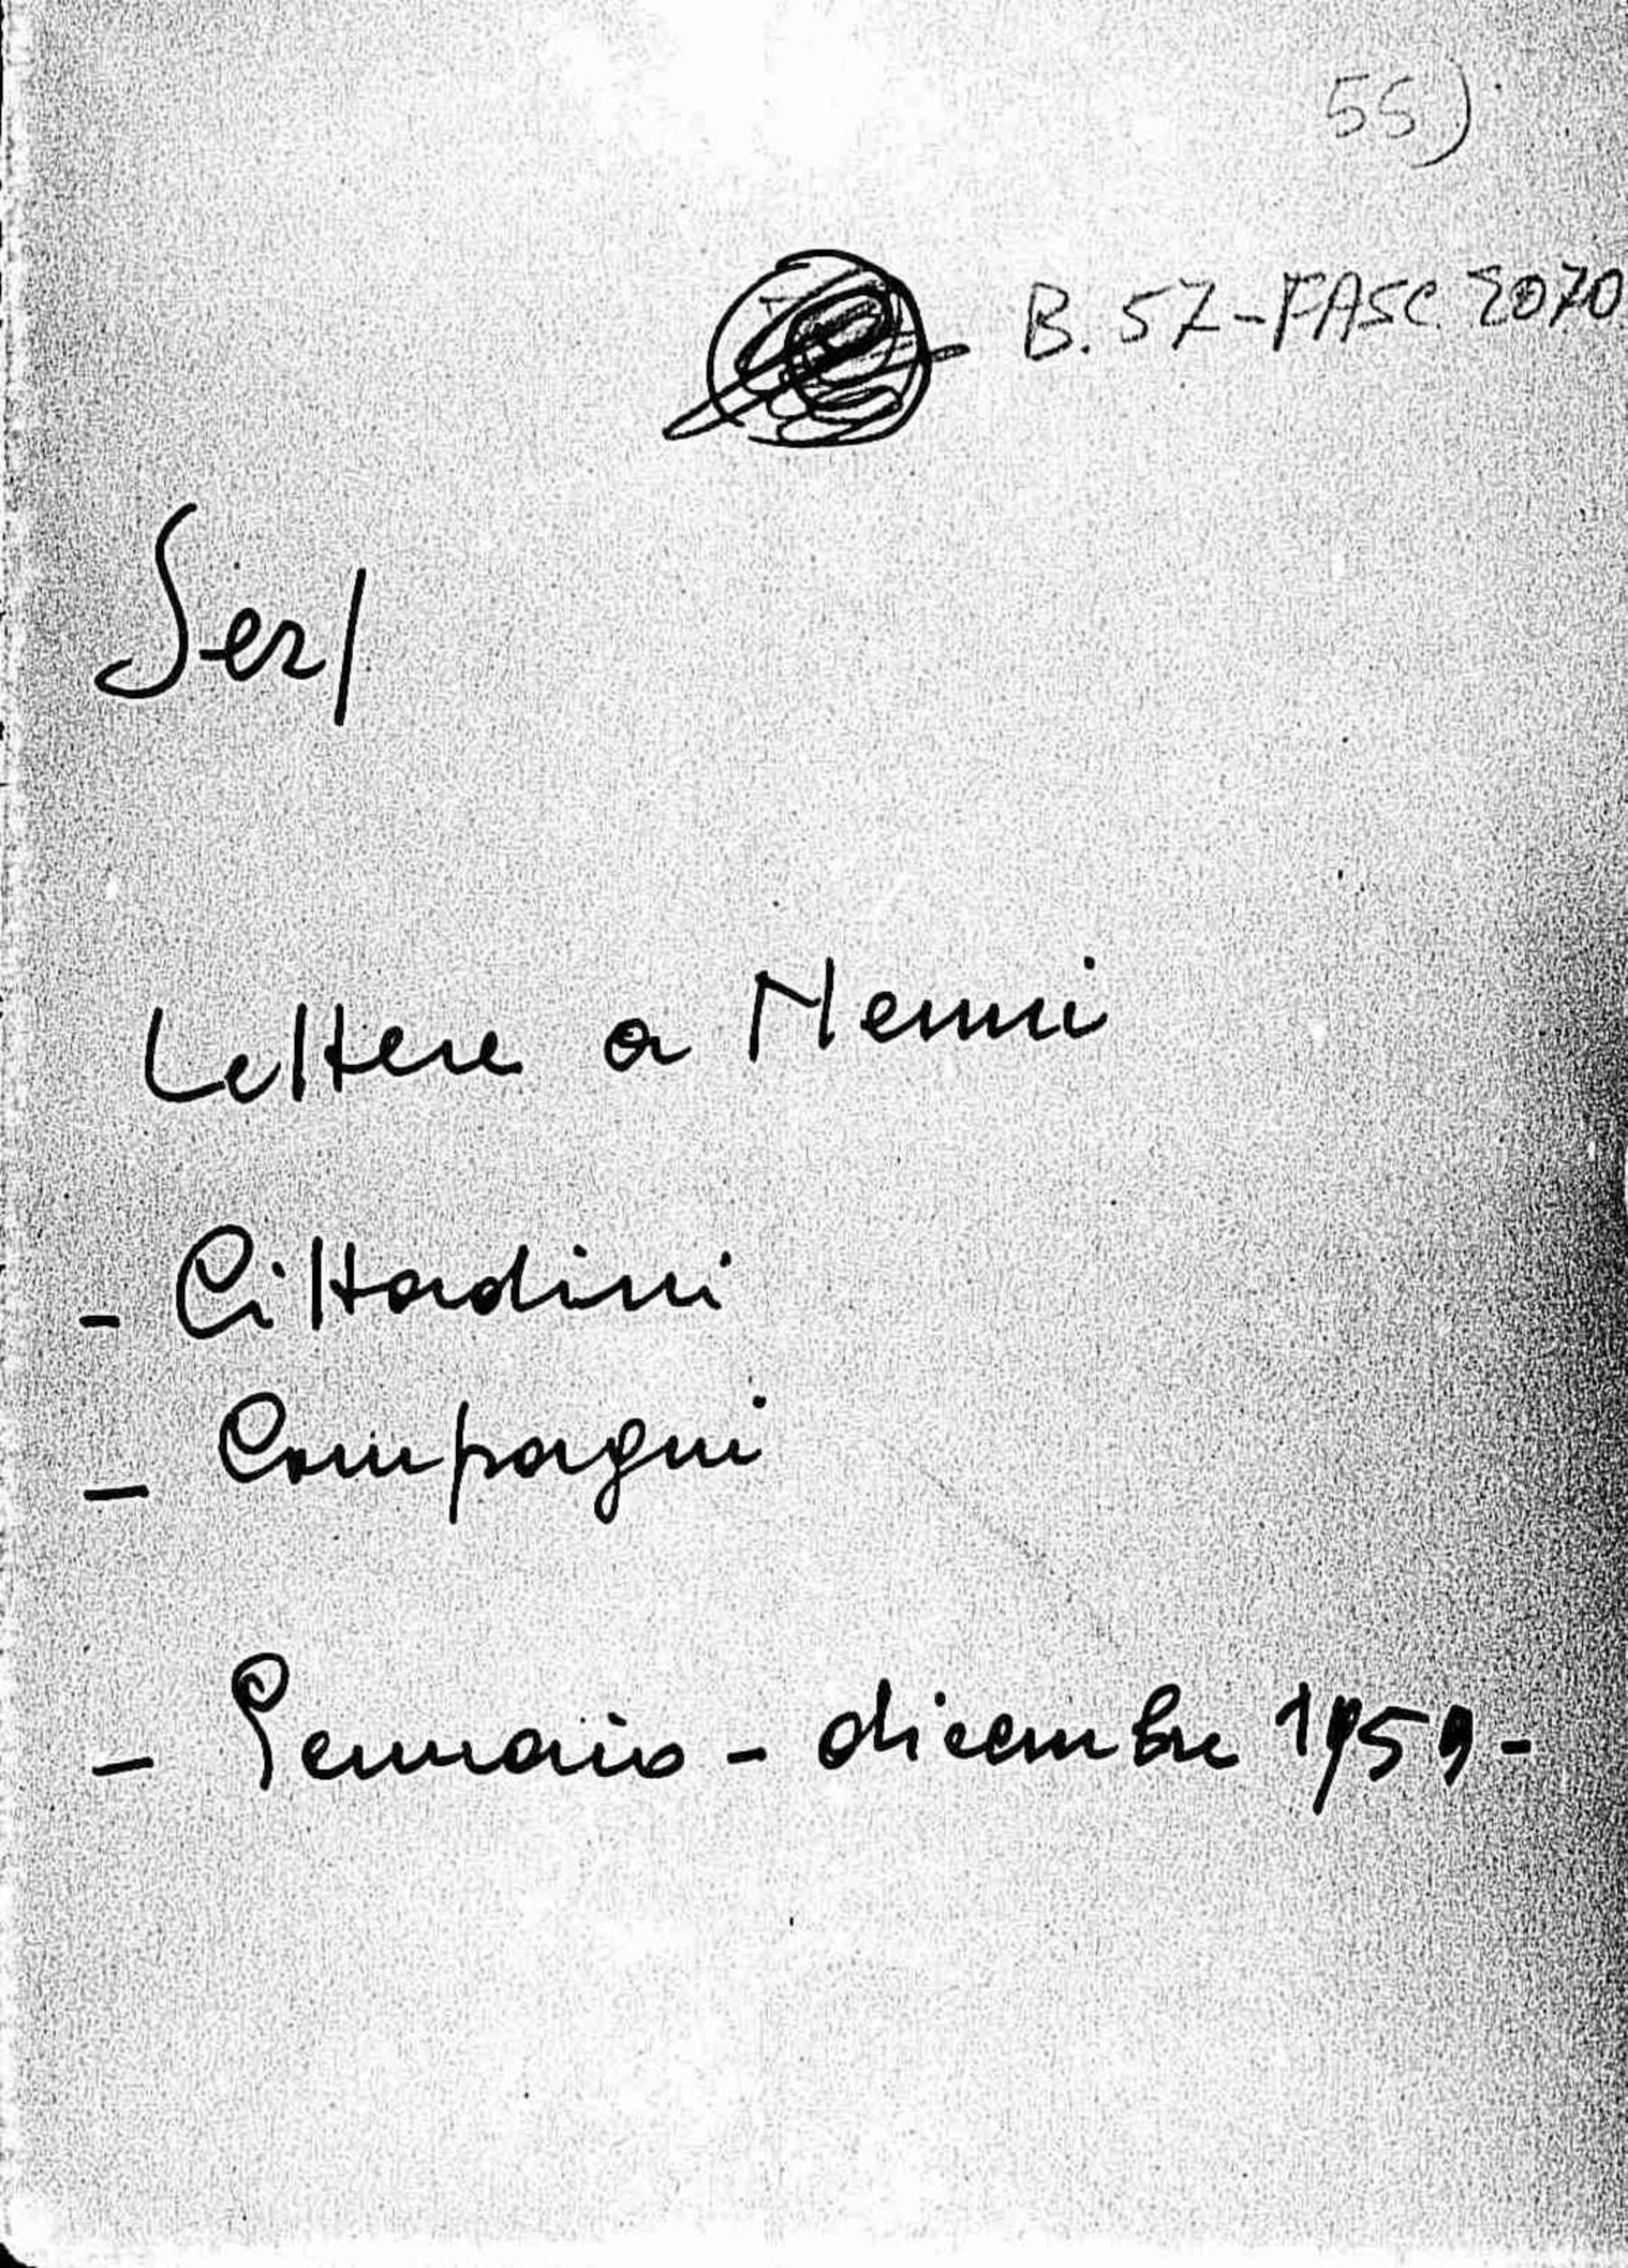 55)
B. 57-FASC. 2070
Ser/
Lettere a Nenni
- Cittadini
- Compagni
- Gennaio - dicembre 1959-